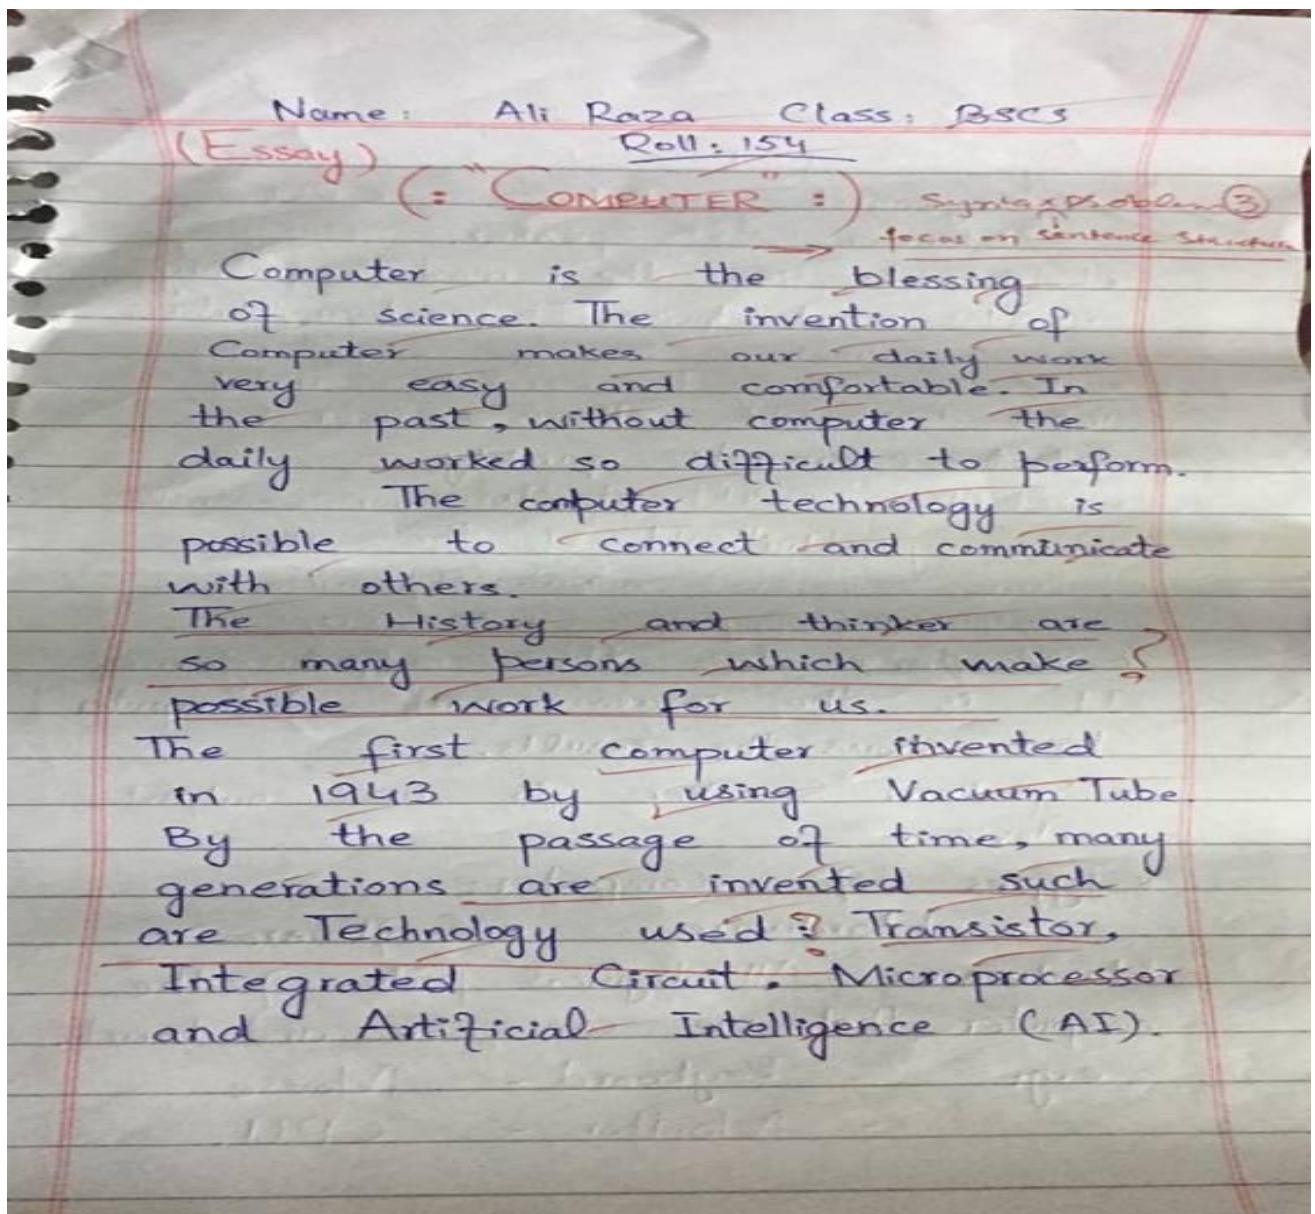 Name: Ali Raza Class: BSCS
(Essay) Roll: 154
(: "COMPUTER" :) Syntax Problem ③
→ focus on sentence structure
Computer is the blessing
of science. The invention of
Computer makes our daily work
very easy and comfortable. In
the past, without computer the
daily worked so difficult to perform.
The computer technology is
possible to connect and communicate
with others.
The History and thinker are
so many persons which make ?
possible work for us.
The first computer invented
in 1943 by using Vacuum Tube.
By the passage of time, many
generations are invented such
are Technology used ? Transistor,
Integrated Circuit, Microprocessor
and Artificial Intelligence (AI).